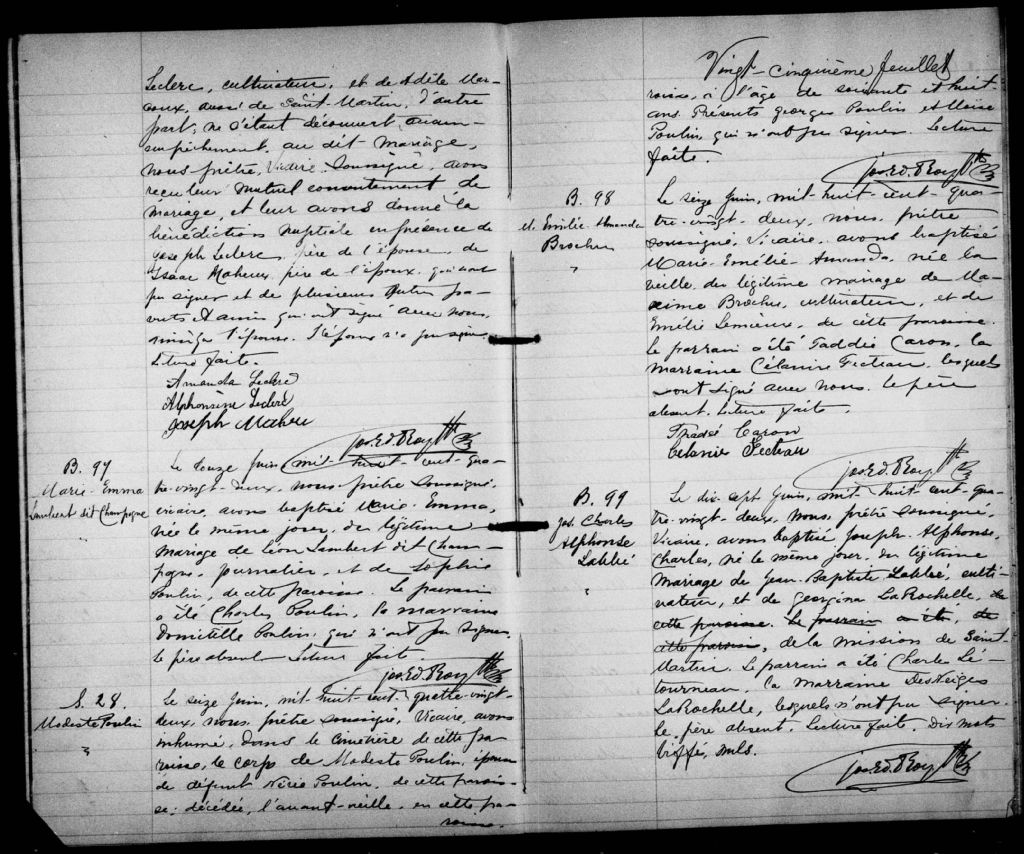 Leclerc, cultivateur, et de Adèle Mar-
coux, aussi de Saint-Martin, d'autre
part; ne s'étant découvert aucun
empêchement, au dit mariage,
nous prêtre, Vicaire, soussigné, avons
reçu leur mutuel consentement de
mariage, et leur avons donné la
bénédiction nuptiale en présence de
Joseph Leclerc, père de l'épouse, de
Isaac Maheux, père de l'époux, qui n'ont
pu signer et de plusieurs autres pa-
rents et amis qui ont signé avec nous,
l'épouse. L'époux n'a pu signer
Lecture faite.
Amanda Leclerc
Alphonsine Leclerc
Joseph Maheu
Jos. Ed. Roy Ptr
B. 97
Marie-Emma
Lambert dit Champagne
Le douze Juin, mil-huit-cent-qua-
tre-vingt-deux, nous prêtre soussigné,
vicaire, avons baptisé Marie-Emma,
née le même jour, du légitime
mariage de Léon Lambert dit Cham-
pagne, journalier, et de Sophie
Poulin, de cette paroisse. Le parrain
a été Charles Poulin, la marraine
Domitille Poulin, qui n'ont pu signer,
le père absent. Lecture faite.
Jos. Ed. Roy Ptr
S. 28.
Modeste Poulin
Le seize Juin, mil-huit-cent quatre-vingt-
deux, nous, prêtre soussigné, Vicaire, avons
inhumé, dans le cimetière de cette pa-
roisse, le corps de Modeste Poulin, épouse
de défunt Poulin, de cette parois-
se; décédée, l'avant-veille, en cette pa-
roisse,
Vingt-cinquième feuillet
roisse, à l'âge de soixante et huit-
ans. Présents Georges Poulin et Moïse
Poulin, qui n'ont pu signer. Lecture
faite.
Jos. Ed. Roy Ptr
B. 98
M. Emélie Amanda
Brochu
Le seize Juin, mil-huit-cent-qua-
tre-vingt-deux, nous, prêtre
soussigné, Vicaire, avons baptisé
Marie-Emélie-Amanda, née la
veille, du légitime mariage de Ma-
xime Brochu, cultivateur, et de
Emélie Lemieux, de cette paroisse.
Le parrain a été Taddée Caron, la
marraine Célanire Fecteau, lesquels
ont signé avec nous. Le père
absent. Lecture faite.
Thadé Caron
Célanire Fecteau
Jos. Ed. Roy Ptr
B. 99
Jos. Charles
Alphonse
Labbé
Le dix-sept Juin, mil-huit-cent-qua-
tre-vingt-deux, nous, prêtre soussigné,
Vicaire, avons baptisé Joseph, Alphonse,
Charles, né le même jour, du légitime
mariage de Jean-Baptiste Labbé, culti-
vateur, et de Georgina LaRochelle, de
cette paroisse. Le parrain a été, de
cette paroisse, de la mission de Saint-
Martin. Le parrain a été Charles Lé-
tourneau, la marraine Desneiges
LaRochelle, lesquels n'ont pu signer.
le père absent. Lecture faite. Dix mots
biffés, nuls.
Jos. Ed. Roy Ptr